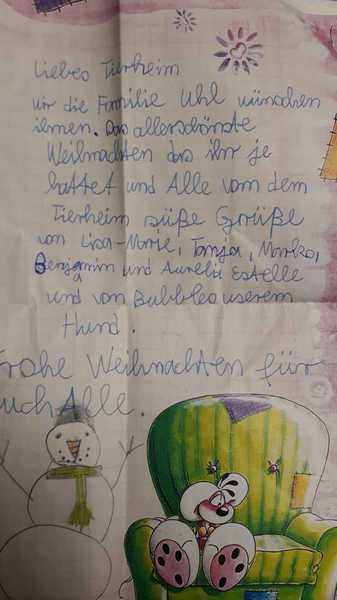 Liebes Tierheim
wir die Familie Uhl wünschen
ihnen. Das allerschönste
Weihnachten das ihr je
hattet und Alle von dem
Tierheim süße Grüße
von Lisa-Marie, Tanja, Marko,
Benjamin und Aurelia Estelle
und von Bubbles userem
Hund.
Frohe Weihnachten für
uch Alle.